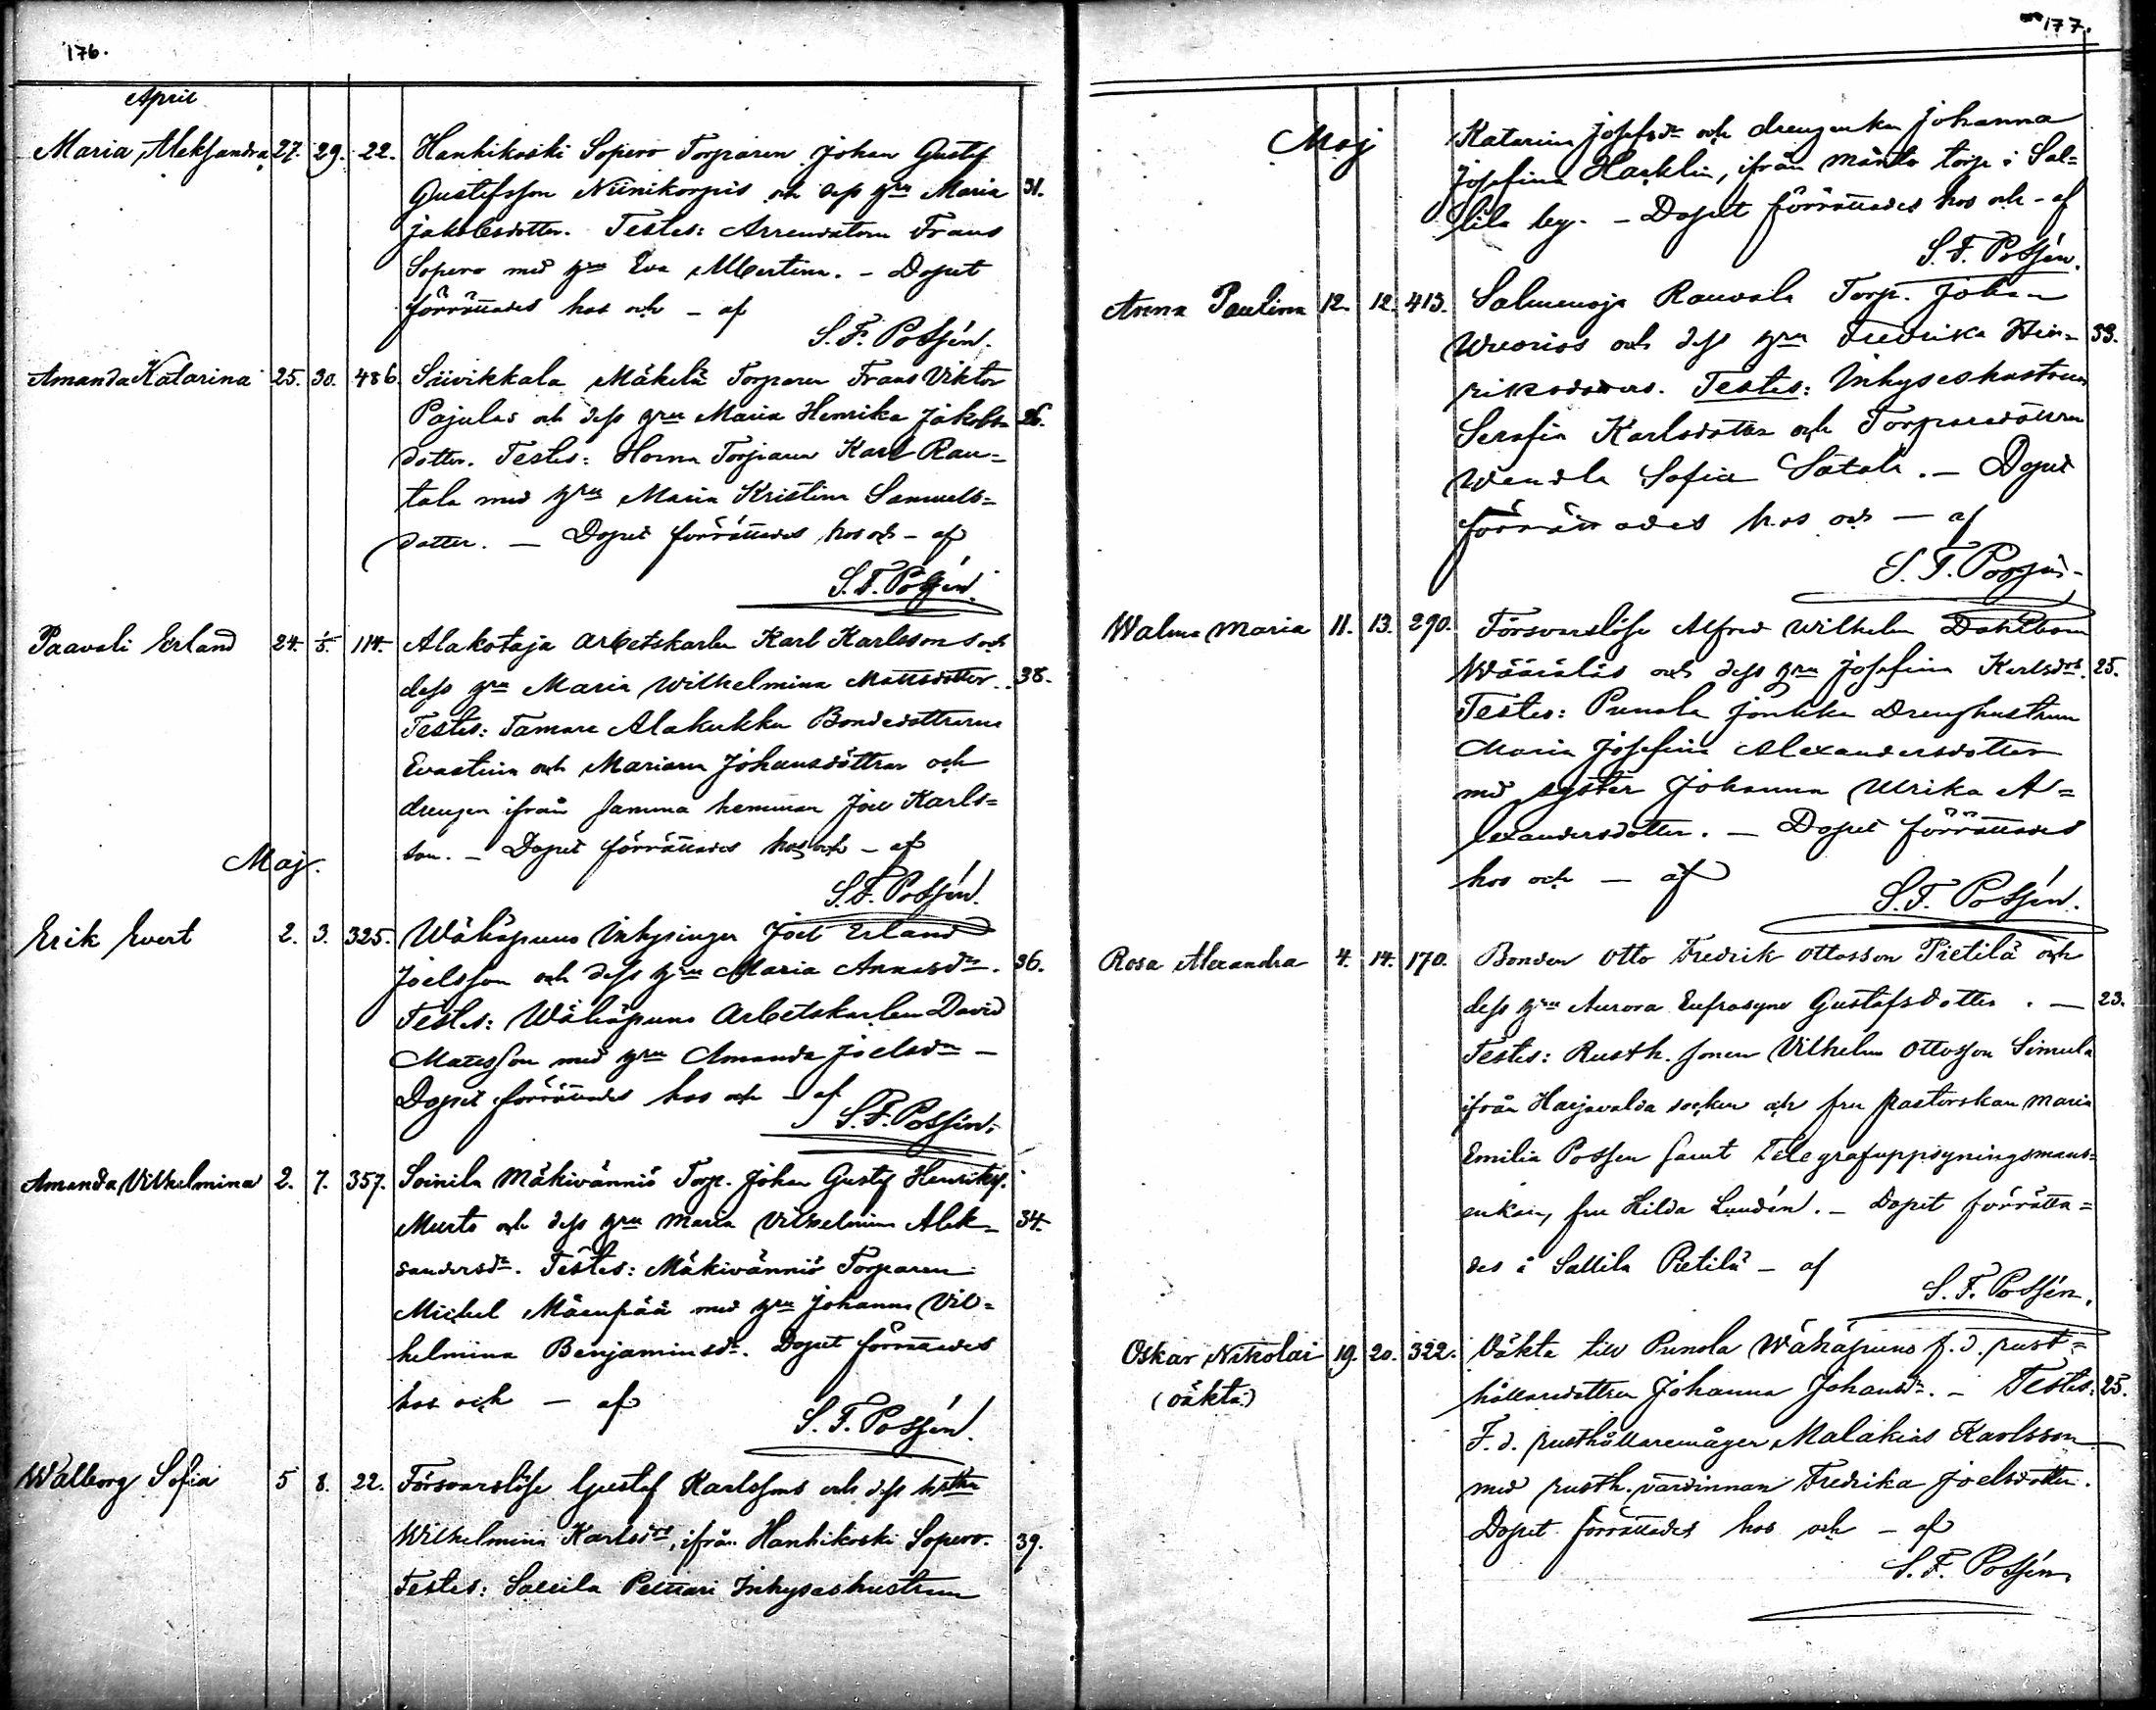 176.
April
Maria Aleksandra 27. 29. 22. Hanhikoski Sopero Torparen Johan Gustf
Gustafsson Niinikorpis och dess hru Maria 31.
Jakobsdotter. Testes: Arrendatorn Frans
Sopero med hru Eva Albertina. - Dopet
förrättades hos och - af
S. F. Possén.
Amanda Katarina 25. 30. 486. Siivikkala Mäkelä Torparen Frans Viktor
Pajulas och dess hru Maria Henrika Jakobs 26.
dotter. Testes: Horna Torparen Karl Rau=
tala med hru Maria Kristina Samuels=
dotter. - Dopet förrättades hos och - af
S. F. Possén.
Paavali Erland 24. 1/5. 114. Alakotaja Arbetskarlen Karl Karlssons och
dess hru Maria Wilhelmina Mattsdotter. 38.
Testes: Tamare Alakukku Bondedöttrarne
Evastina och Mariana Johansdöttrar och
drengen ifrån samma hemman Joel Karls=
son. - Dopet förrättades hos och - af
Maj.
S. F. Possén.
Erik Evert 2. 3. 325. Wähäpuno Inhysingen Joel Erland
Joelsson och dess hru Maria Annasdr. 36.
Testes: Wähäpuno Arbetskarlen David
Matsson med hru Amanda Joelsdr -
Dopet förrättades hos och - af
S. F. Possén.
Amanda Vilhelmina 2. 7. 357. Soinila Mäkivänniö Torp. Johan Gustaf Henriksf.
Murto och dess hru Maria Vilhelmina Alek= 34.
sandersdr. Testes: Mäkivänniö Torparen
Mickel Mäenpää med hru Johanna Vil=
helmina Benjaminsdr. Dopet förrättades
hos och - af
S. F. Possén.
Walborg Sofia 5 8. 22. Försvarslöse Gustaf Karlssons och dess hstru
Wilhelmina Karlsdr, ifrån Hanhikoski Sopero. 39.
Testes: Sallila Pelttari Inhyseshustrun
177.
Maj
Katarina Josefsdr och drengenka Johanna
Josefina Hacklin, ifrån Mäntö torp i Sal=
lila by. - Dopet förrättades hos och - af
S. F. Possén.
Anna Paulina 12. 12. 413. Salmenoja Rauvala Torp. Johan
Wuorios och dess hru Fredrika Hen= 33.
riksdotters. Testes: Inhyseshustrun
Serafia Karlsdotter och Torparedottren
Wendla Sofia Satala. - Dopet
förrättades hos och - af
S. F. Possén.
Walma Maria 11. 13. 290. Försvarslöse Alfred Wilhelm Dahlbom
Wääiäläs och dess hru Josefina Karlsdr. 25.
Testes: Punola Jonkka Drenghustrun
Maria Josefina Alexandersdotter
med syster Johanna Ulrika A=
lexandersdotter. - Dopet förrättades
hos och - af
S. F. Possén.
Rosa Alexandra 4. 14. 170. Bonden Otto Fredrik Ottosson Pietilä och
dess hru Aurora Eufrosyne Gustafsdotter. - 23.
Testes: Rusth. sonen Vilhelm Ottosson Simula
ifrån Harjavalda socken och fru Pastorskan Maria
Emilia Possen samt Telegrafuppsyningsmans=
enkan, fru Hilda Lundén. - Dopet förrätta=
des i Sallila Pietilä - af
S. F. Possén.
Oskar Nikolai 19. 20. 322. Oäkta till Punola Wähäpuno f. d. rust=
(oäkta)
hållaredottren Johanna Johansdr. - Testes: 25.
F. d. rusthållaremågen Malakias Karlsson
med rusth. värdinnan Fredrika Joelsdotter.
Dopet förrättades hos och - af
S. F. Possén.